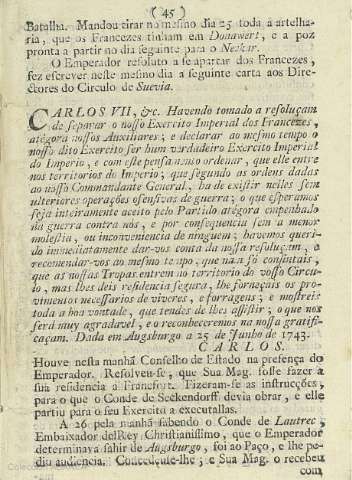 ( 45 )
Batalha. Mandou tirar no mesmo dia 25 toda a artelha-
ria, que os Francezes tinham em Donawert, e a poz
pronta a partir no dia seguinte para o Neckar.
O Emperador resoluto a separar dos Francezes,
fez escrever neste mesmo dia a seguinte carta aos Dire-
ctores do Circulo de Suevia.
CARLOS VII, &c. Havendo tomado a resoluçam
de separar o nosso Exercito Imperial dos Francezes,
atégora nossos Auxiliares; e declarar ao mesmo tempo o
nosso dito Exercito ser hum verdadeiro Exercito Imperial
do Imperio, e com este pensamento ordenar, que elle entre
nos territorios do Imperio; que segundo as ordens dadas
ao nosso Commandante General, ha de existir nelles sem
ulteriores operações ofensivas de guerra; o que esperamos
seja inteiramente aceito pelo Partido atégora empenhado
na guerra contra nós, e por consequencia sem a menor
molestia, ou inconveniencia de ninguem; havemos queri-
do immediatamente dar-vos conta da nossa resoluçam, e
recomendar-vos ao mesmo tempo, que nam só consintais,
que as nossas Tropas entrem no territorio do vosso Circu-
lo, mas lhes deis residencia segura, lhe forneçais os pro-
vimentos necessarios de viveres, e forragens; e mostreis
toda a boa vontade, que tendes de lhes assistir; o que nos
será muy agradavel, e o reconheceremos na nossa gratifi-
caçam. Dada em Augsburgo a 25 de Junho de 1743.
CARLOS.
Houve nesta manhã Conselho de Estado na presença do
Emperador. Resolveu-se, que Sua Mag. fosse fazer a
sua residencia a Francfort. Fizeram-se as instrucções,
para o que o Conde de Seckendorff devia obrar, e elle
partiu para o seu Exercito a executallas.
A 26 pela manhã sabendo o Conde de Lautrec,
Embaixador delRey Christianissimo, que o Emperador
determinava sahir de Augsburgo, foi ao Paço, e lhe pe-
diu audiencia. Concedeuse-lhe; e Sua Mag. o recebeu
com